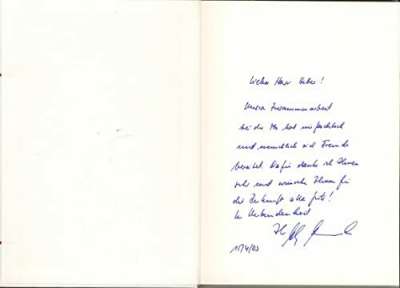 Lieber Herr Huber!
Unsere Zusammenarbeit
bei der hat mir fachlich
und menschlich viel Freude
bereitet. Dafür danke ich Ihnen
sehr und wünsche Ihnen für
die Zukunft alles Gute!
In Verbundenheit
Ihr